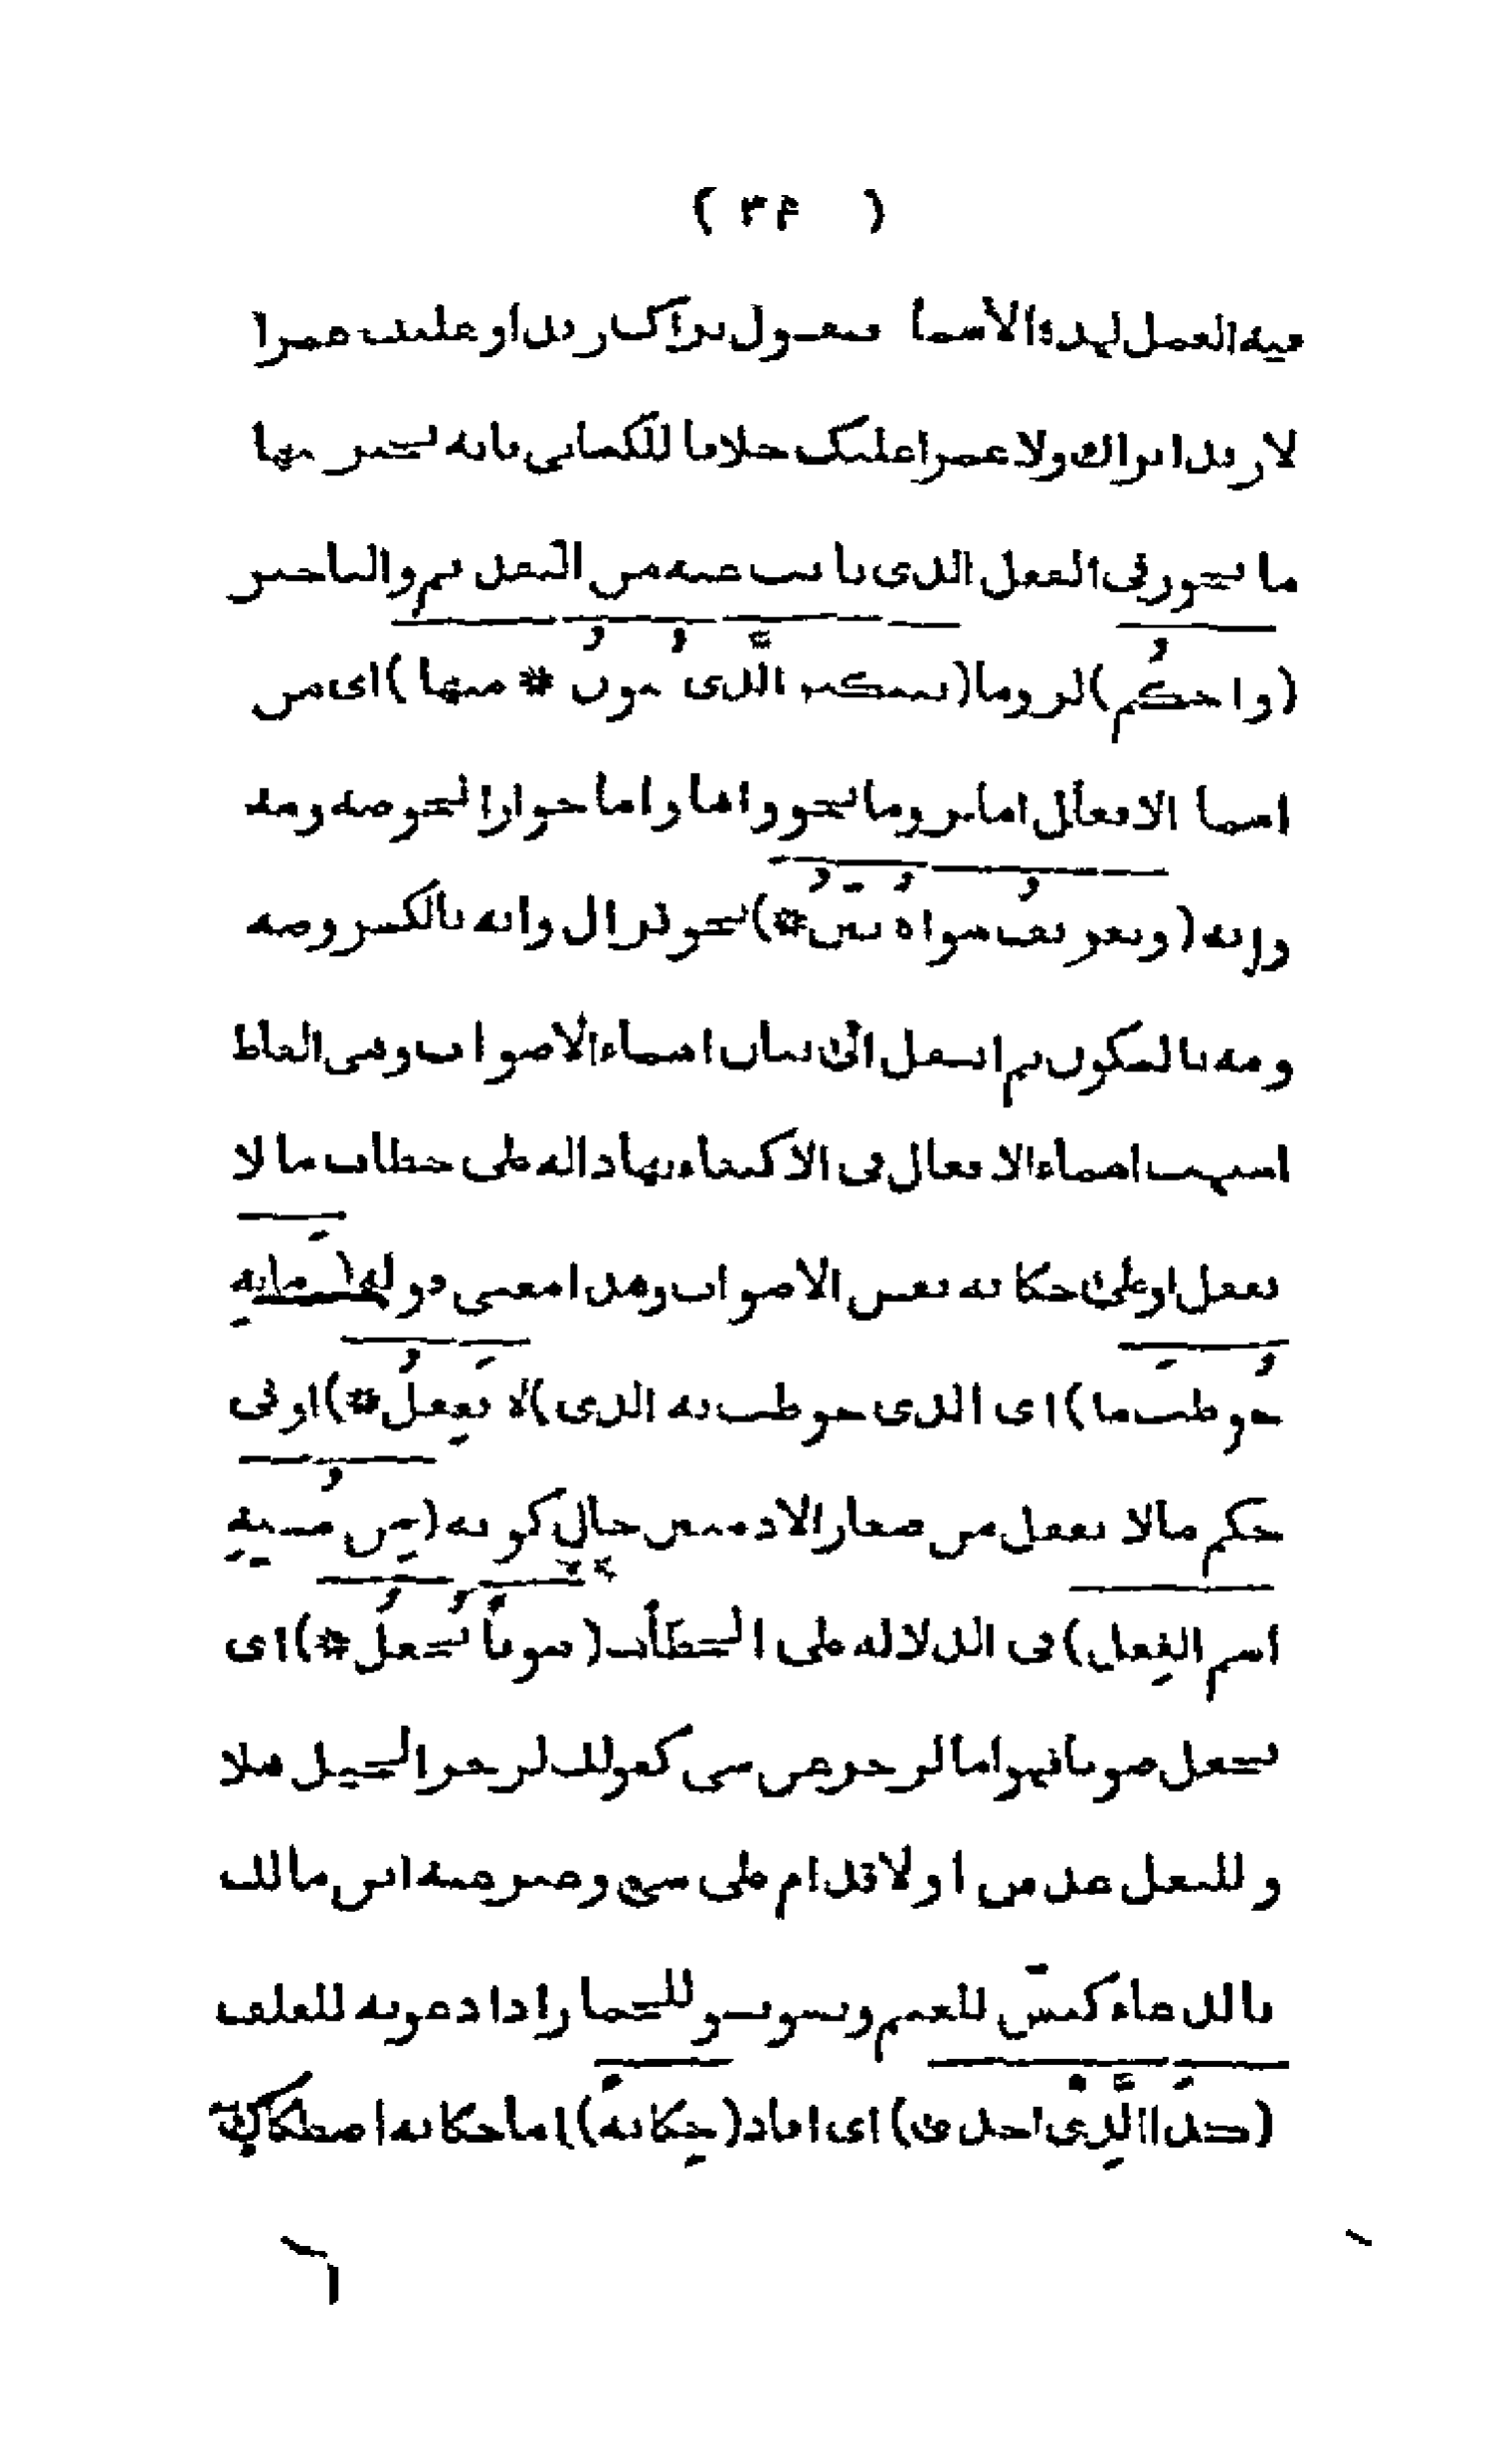 ( ٣۴ )
فيه العمل لهذه الاسما فتقول تراك زيدا وعليك عمرا
لا زيدا تراك ولا عمرا عليك خلافا للكسائى فانه يجيز فيها
ما يجوز فى الفعل الذى نابت عنه من التقديم والتاخير
(واحكم) لزوما (بتنكير الذى ينون * منها) اى من
اسما الافعال اما لزوما نحو واها واما جوازا نحو صه ومه
وايه (وتعريف سواه بين *) نحو نزال وايه بالكسر وصه
ومه بالسكون ثم انتقل الى بيان اسماء الاصوات وهى الفاظ
اشبهت اسماء الافعال فى الاكتفاء بها دالة على خطاب ما لا
يعقل او على حكاية بعض الاصوات وهذا معنى قوله (ما به
خوطب ما) اى الذى خوطب به الذى (لا يعقل *) او فى
حكم ما لا يعقل من صغار الادميين حال كونه (من مشبه
اسم الفعل) فى الدلالة على الخطاب (صوتا يجعل *) اى
يجعل صوتا فهو اما لزجر عن شى كقولك لزجر الخيل هلا
وللبغل عدس او لاقدام على شى وعبر عنه ابن مالك
بالدعاء كبس للغنم وتسوتسو للحمار اذا دعوته للعلف
(كذا الذى اجدى) اى افاد (حكاية) اما حكاية اصطكاك